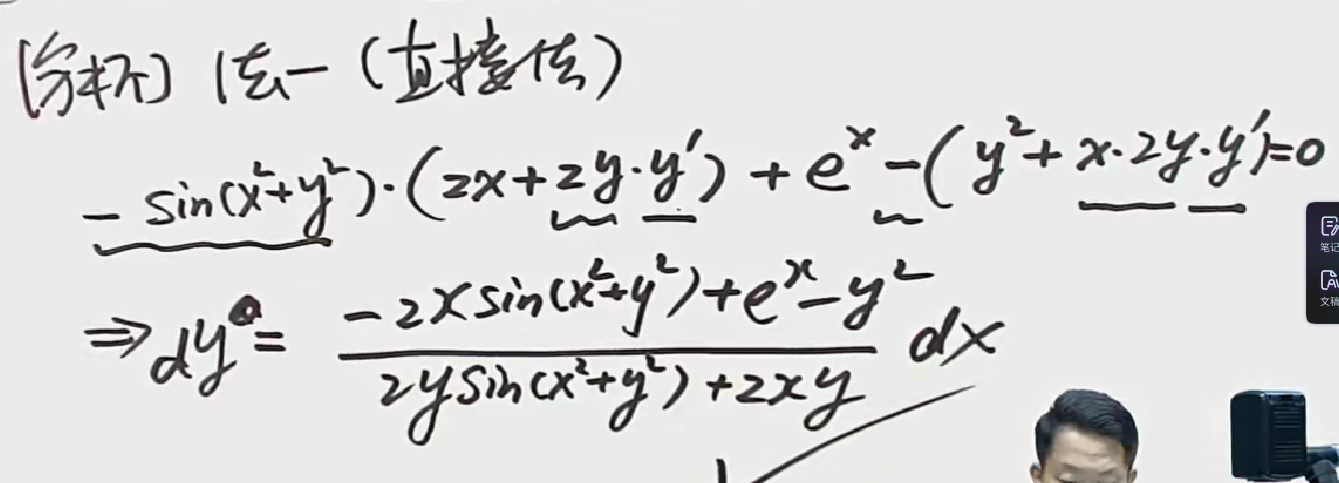 [分析] 法一(直接法)
-sin(x²+y²)·(2x+2y·y′)+eˣ-(y²+x·2y·y′)=0
⇒dy=\frac{-2xsin(x²+y²)+eˣ-y²}{2ysin(x²+y²)+2xy}dx
笔记
文稿